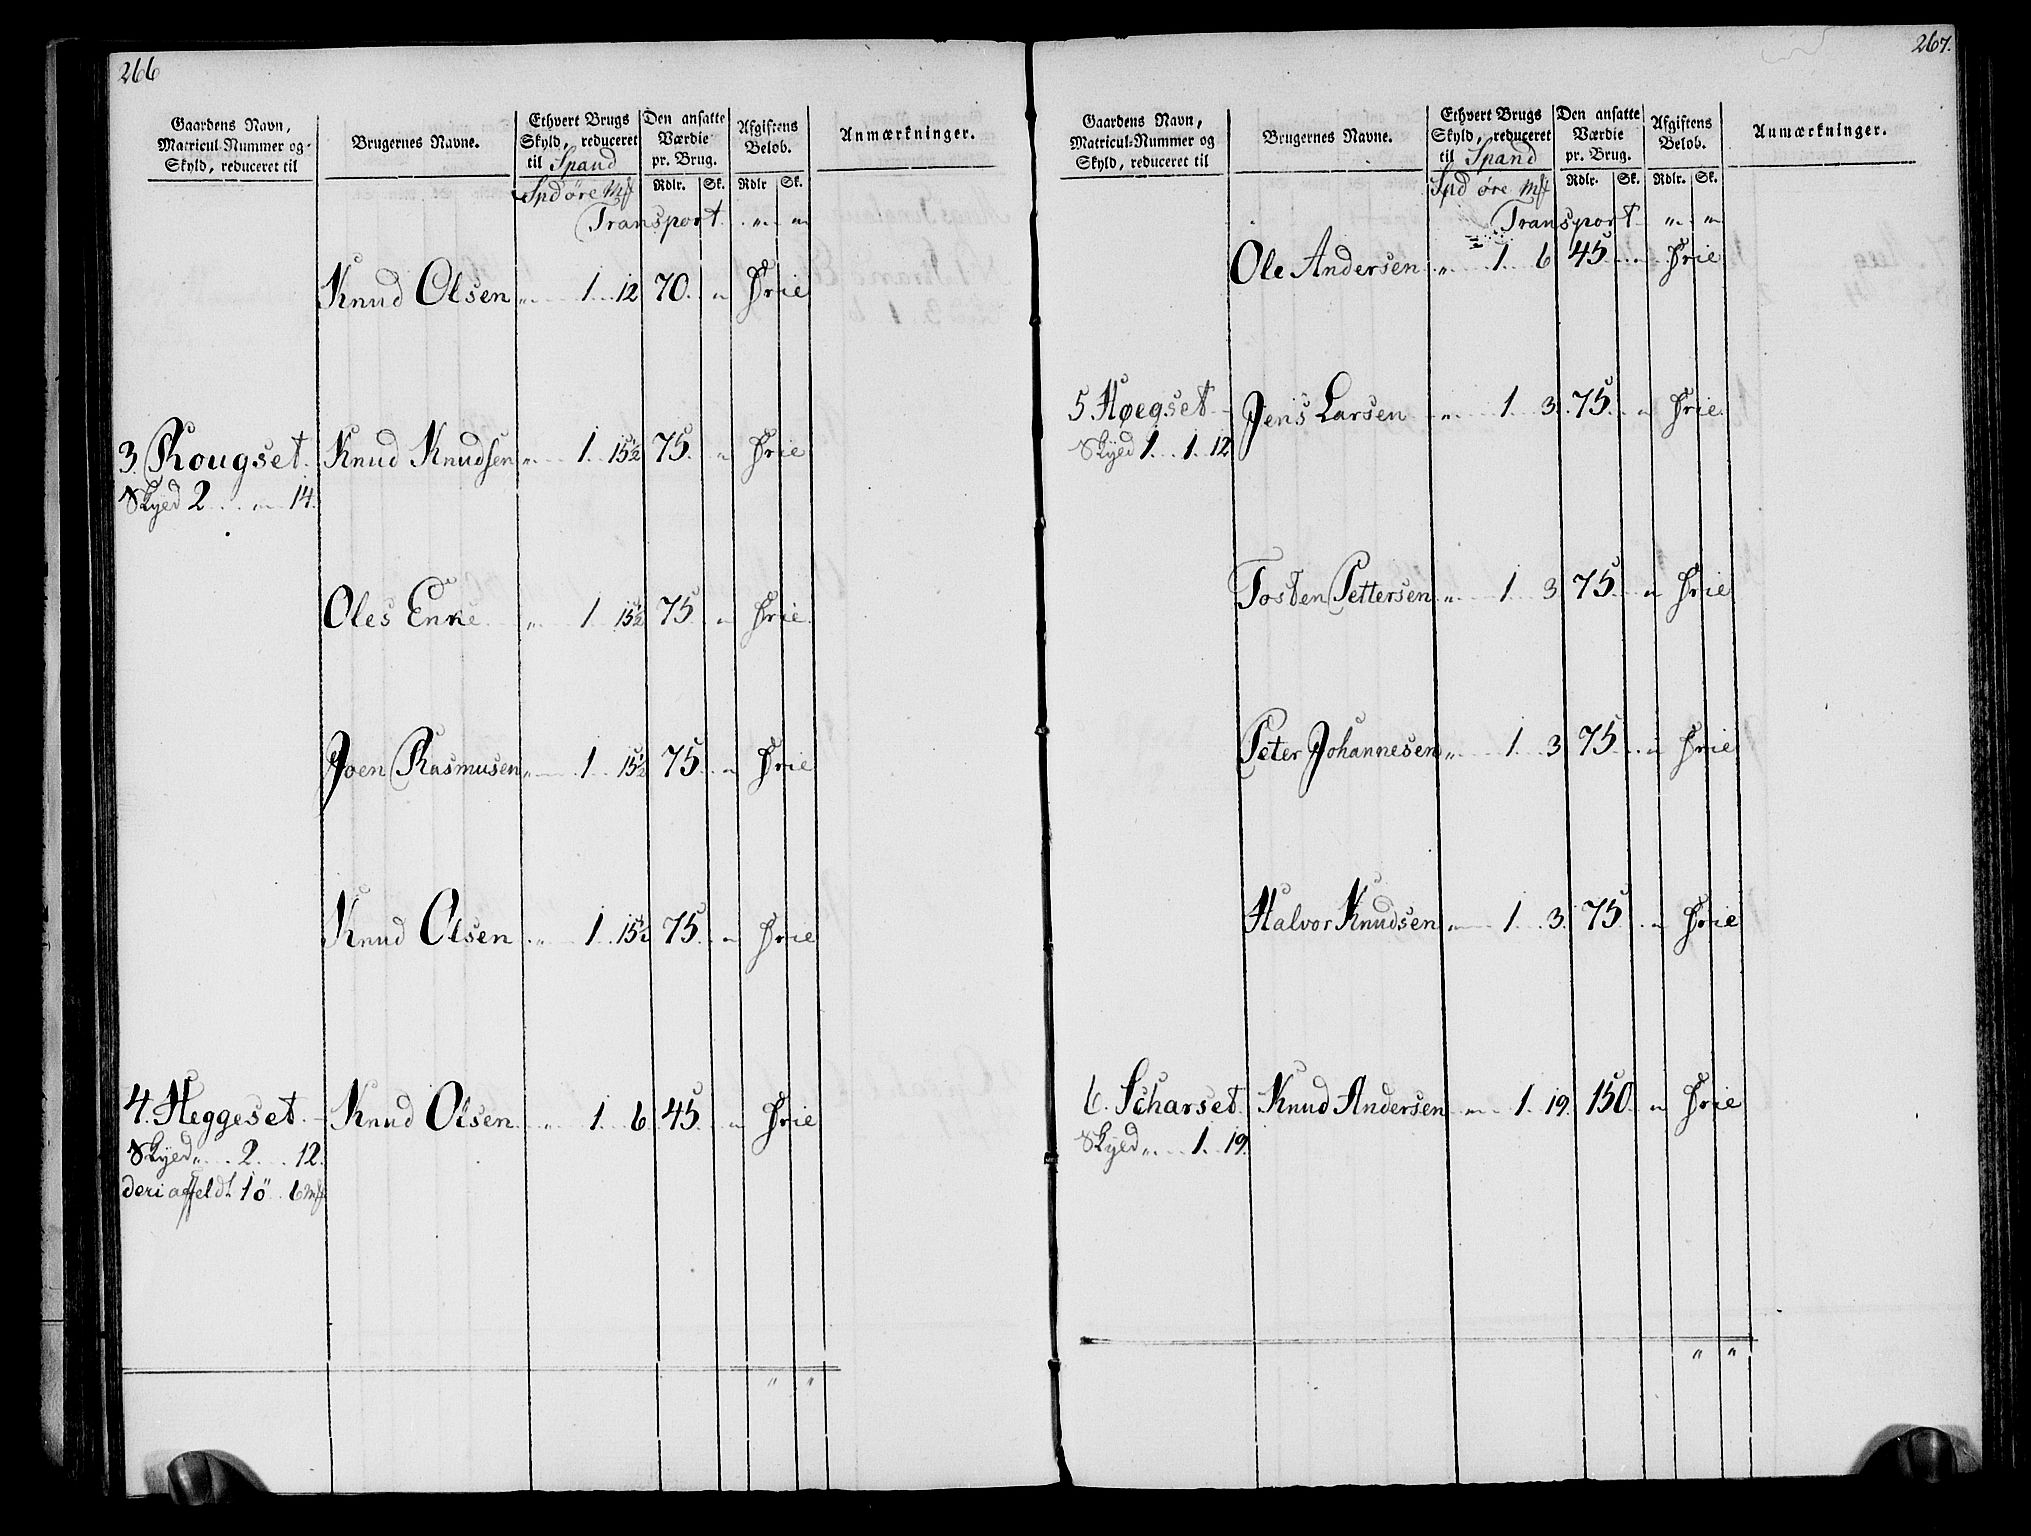 266
Gaardens Navn, Matricul-Nummer og Skyld, reduceret til | Brugernes Navne. | Ethvert Brugs Skyld, reduceret til Spand | Den ansatte Værdie pr. Brug. | Afgiftens Beløb. | Anmærkninger.
Spd øre mk | Rdlr. | Sk. | Rdlr | Sk.
Transport . „ „
Knud Olsen „ 1 12 70. „ Frie
3. Rougset. Knud Knudsen „ 1 15½ 75. „ Frie
Skyed 2 „ 14.
Oles Enke „ 1 15½ 75 „ Frie
Joen Rasmusen „ 1 15½ 75. „ Frie
Knud Olsen „ 1 15½ 75. „ Frie
4. Heggeset. Knud Olsen „ 1 6 45 „ Frie
Skyed „ 2 12.
deri 1ö 6 mk
„ „
267.
Gaardens Navn, Matricul-Nummer og Skyld, reduceret til | Brugernes Navne. | Ethvert Brugs Skyld, reduceret til Spand | Den ansatte Værdie pr. Brug. | Afgiftens Beløb. | Anmærkninger.
Spd øre mk | Rdlr. | Sk. | Rdlr. | Sk.
Transport „ „
Ole Andersen „ 1 6 45 „ Frie
5. Høegset Jens Larsen „ 1 3. 75. „ Frie
Skyed 1. 1. 12
Tosten Pettersen „ 1 3 75 „ Frie
Peter Johannesen „ 1 3 75 „ Frie
Halvor Knudsen „ 1 3. 75 „ Frie
6. Scharset. Knud Andersen „ 1. 19. 150. „ Frie
Skyed „ 1. 19.
„ „